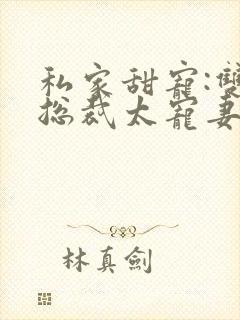 私家甜寵:雙
总裁太寵妻
林真劍